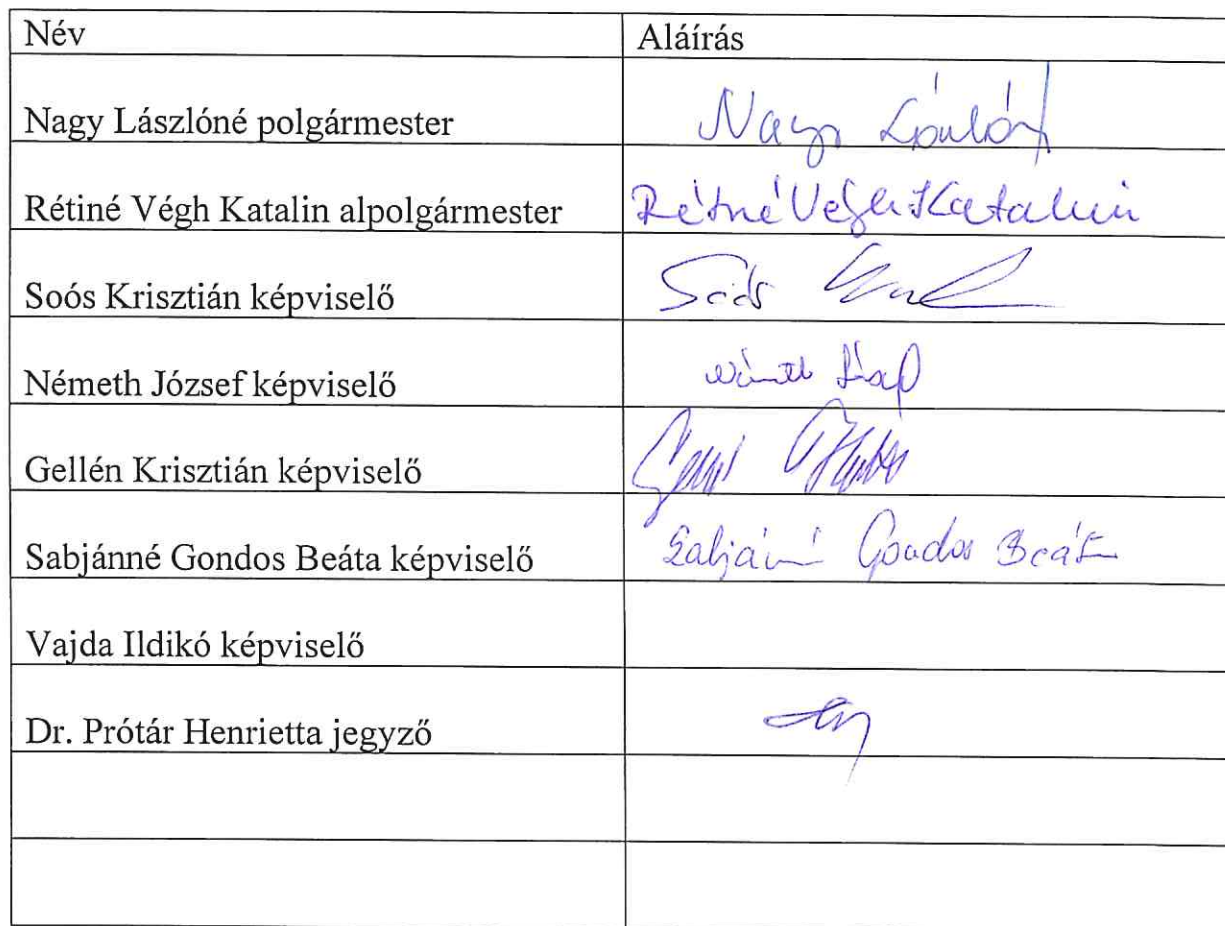 Név Aláírás
Nagy Lászlóné polgármester Nagy
Rétiné Végh Katalin alpolgármester Rétiné Végh Katalin
Soós Krisztián képviselő Soós
Németh József képviselő
Gellén Krisztián képviselő
Sabjánné Gondos Beáta képviselő Sabjánné Gondos Beáta
Vajda Ildikó képviselő
Dr. Prótár Henrietta jegyző